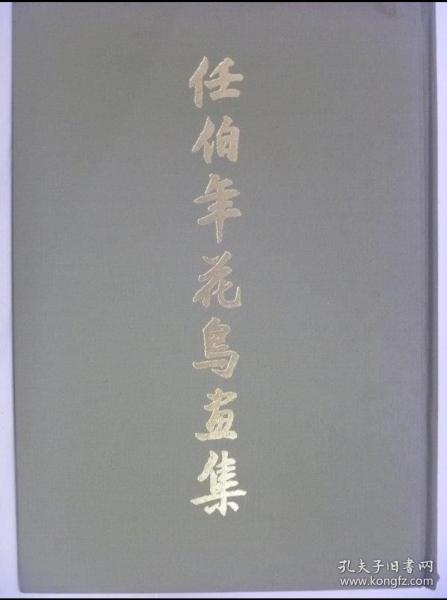 任伯年花鸟画集
孔夫子旧书网
www.kongfz.com